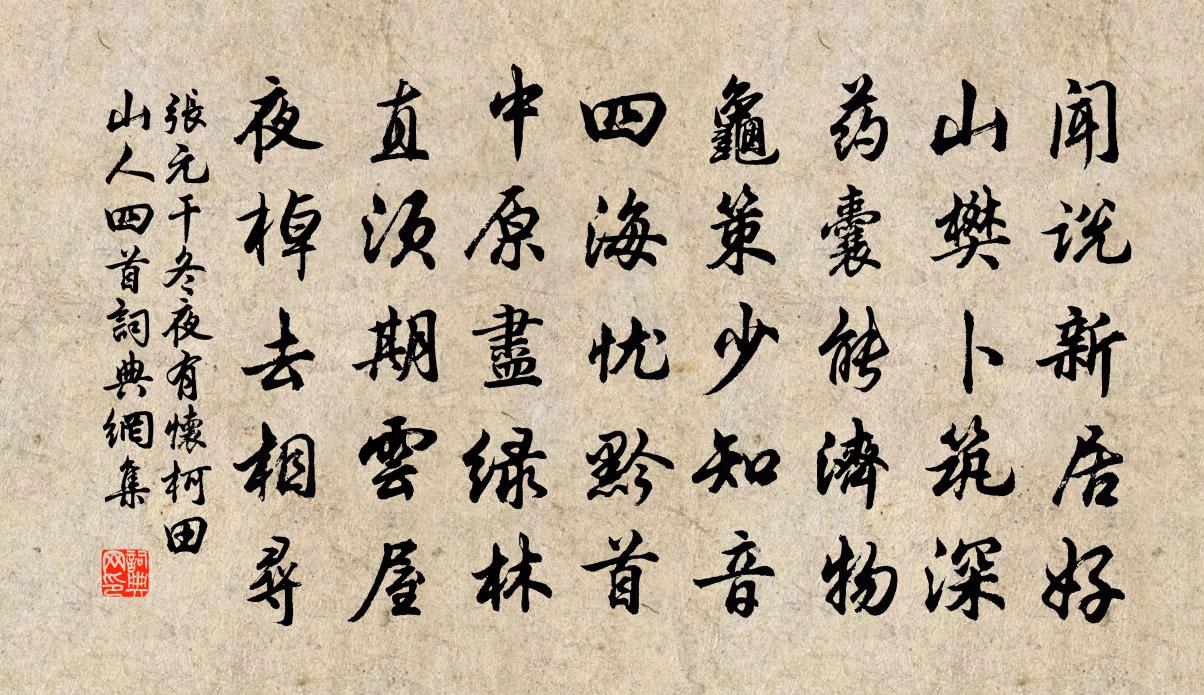 闻说新居好
山樊卜筑深
药囊能濟物
龜策少知音
四海忧黔首
中原盡绿林
直须期雲屋
夜棹去相尋
張元干冬夜有懷柯田
山人四首詞典網集
詞典
网印